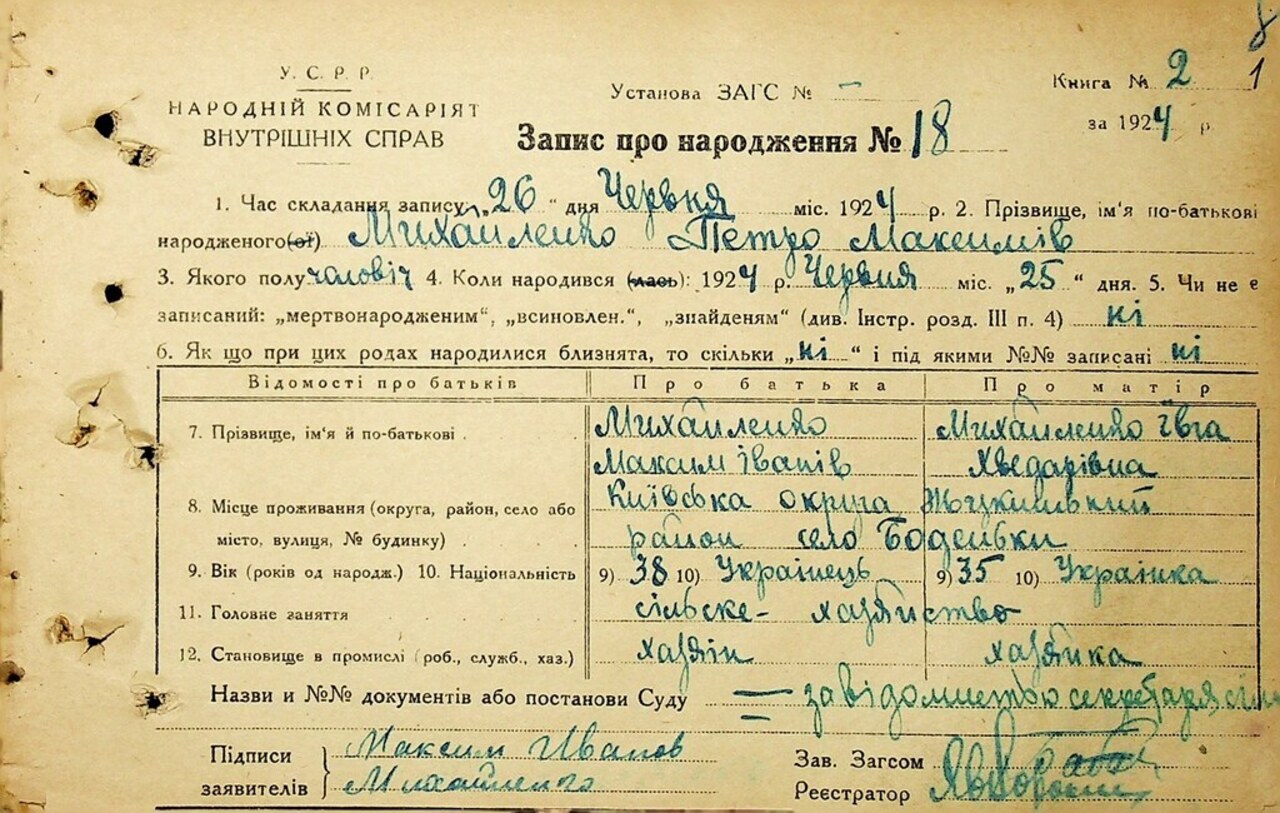 8
1
У. С. Р. Р.
НАРОДНІЙ КОМІСАРІЯТ
ВНУТРІШНІХ СПРАВ
Установа ЗАГС № –
Книга № 2
за 1924 р.
Запис про народження № 18
1. Час складання запису „26“ дня Червня міс. 1924 р. 2. Прізвище, ім'я по-батькові
народженого(ої) Михайленко Петро Максимів
3. Якого полу чаловіч 4. Коли народився (лась): 1924 р. Червня міс. „25“ дня. 5. Чи не є
записаний: „мертвонародженим“, „всиновлен.“, „знайденям“ (див. Інстр. розд. III п. 4) ні
6. Як що при цих родах народилися близнята, то скільки „ні“ і під якими №№ записані ні
Відомості про батьків Про батька Про матір
7. Прізвище, ім'я й по-батькові Михайленко Михайленко Ївга
Максим Іванів Хведарівна
8. Місце проживання (округа, район, село або Київська округа Жукинський
місто, вулиця, № будинку) район село Боденьки
9. Вік (років од народж.) 10. Національність 9) 38 10) Українець 9) 35 10) Українка
11. Головне заняття сільске- хазяйство
12. Становище в промислі (роб., служб., хаз.) хазяін хазяйка
Назви и №№ документів або постанови Суду — за відомистью секретаря сіль
Підписи заявителів Максим Иванов
Михайленко
Зав. Загсом
Реєстратор